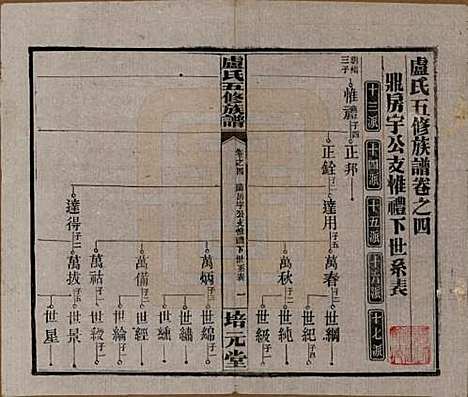 盧氏五修族譜卷之四
鼎房宇公支惟禮下世系表
十三派
十四派
十五派
十六派
十七派
朝楷三子
惟禮 子四
正邦
正銓 子二
達用 子五
達得 子二
萬春 子二
萬秋 子二
萬炳 子三
萬備 子二
萬祜 子二
萬拔 子五
世綱
世紀 子四
世純
世級 子二
世綿 子二
世繡
世纁
世經
世綸 子二
世緞 子二
世景 子二
世星
盧氏五修族譜
卷之四
鼎房宇公支惟禮下世系表
一
培元堂